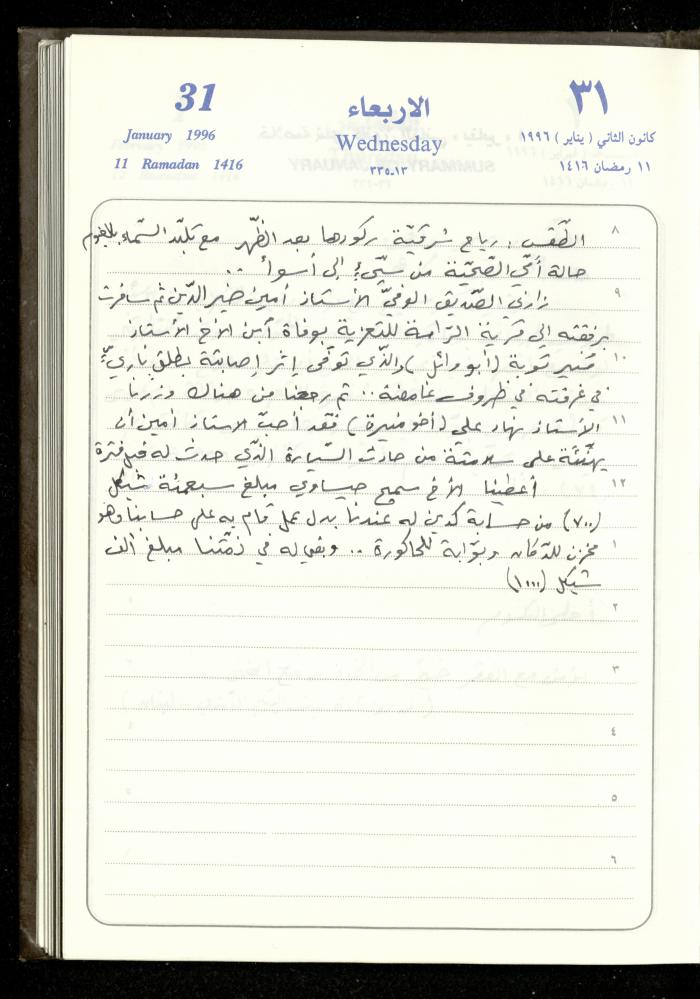 31
January 1996
11 Ramadan 1416
الاربعاء
Wednesday
٣٣٥-١٣
٣١
كانون الثاني ( يناير ) ١٩٩٦
١١ رمضان ١٤١٦
٨ الطّقس : رياح شرقيّة ركودها بعد الظّهر مع تلبّد السّماء بالغيوم
حالة أمّي الصّحّيّة من سيّيءٍ إلى أسوأ ..
٩ زارني الصّديق الوفيّ الأستاذ أمين خير الدّين ثم سافرت
برفقته إلى قرية الرّامة للتعزية بوفاة ابن الأخ الأستاذ
١٠ منير توبة (أبو وائل) والّذي توفّى إثر إصابتة بطلق ناريّ
في غرفته في ظروف غامضة .. ثم رجعنا من هناك وزرنا
١١ الأستاذ نهاد علي (أخو منيرة) فقد أحبّ الاستاذ أمين أن
يهنّئة على سلامتة من حادث السّيارة الذّي حدث له قبل فترة
١٢ أعطينا الأخ سميح عيساوي مبلغ سبعمئة شيكل
(٧٠٠) من حسابة كدين له عندنا بدل عمل قام به على حسابنا وهو
١ مخزن للدّكان وبوّابة للحاكورة .. وبقي له في ذمّتنا مبلغ ألف
شيكل (١٠٠٠)
٢
٣
٤
٥
٦